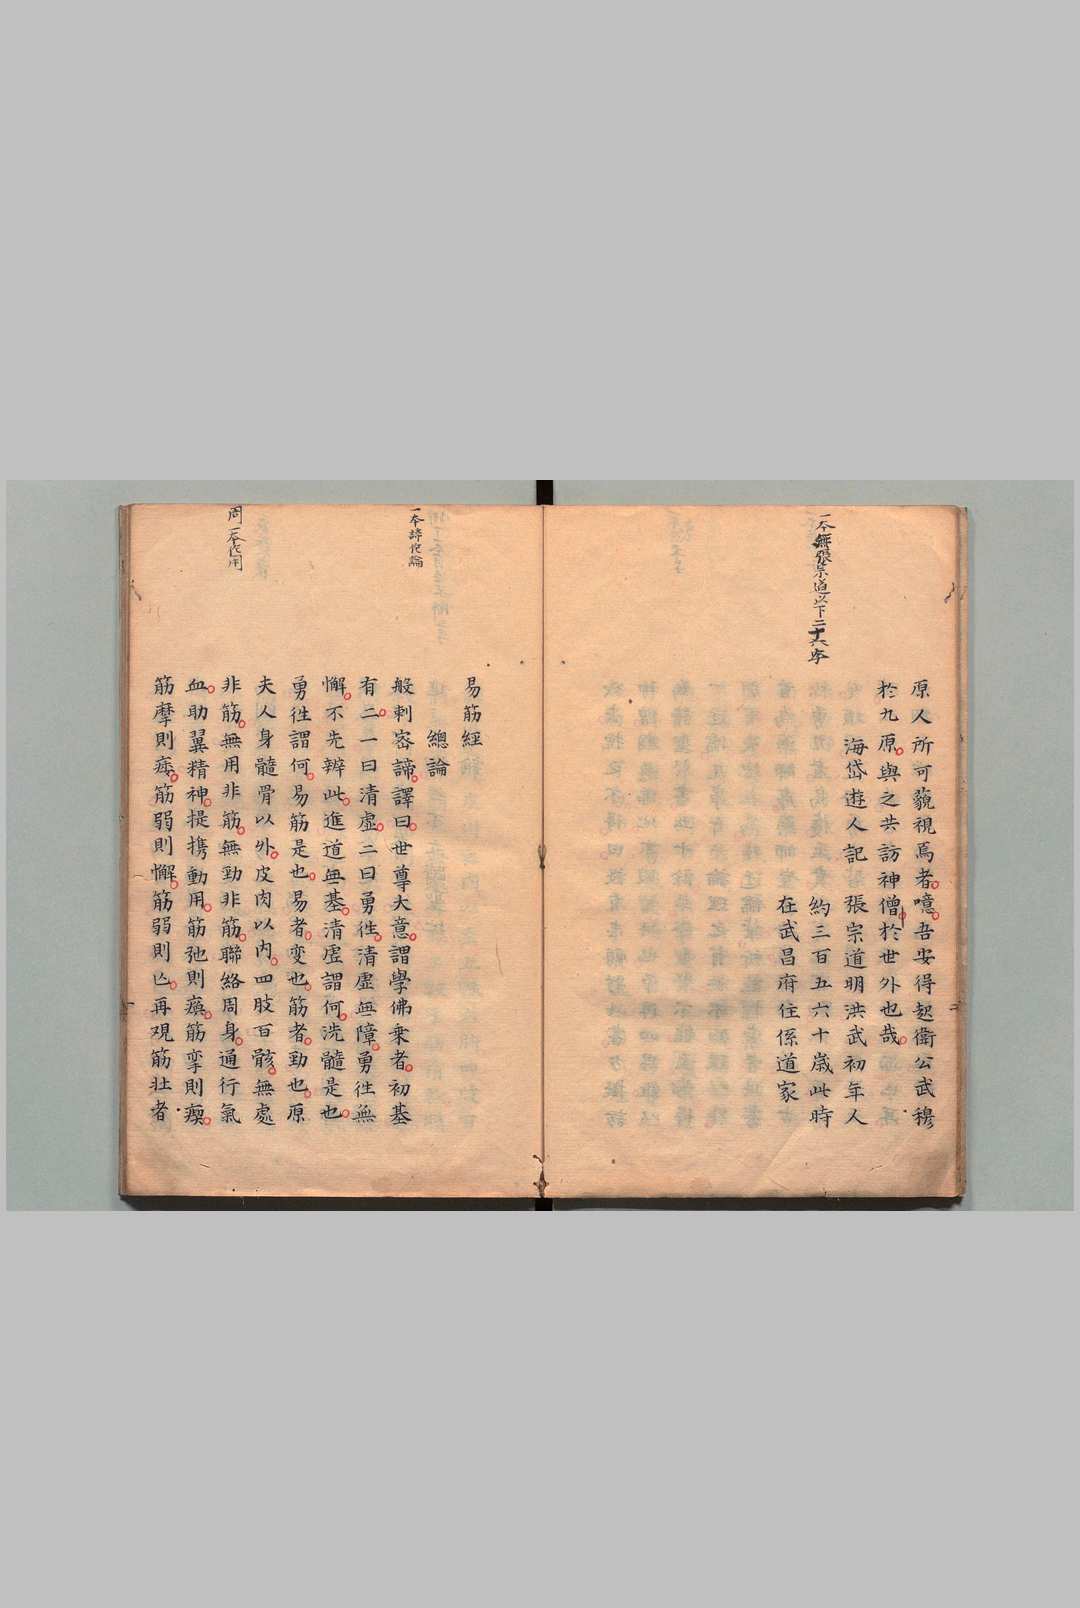 一本無張宗道以下二十六字
原人所可藐視焉者噫吾安得起衛公武穆
於九原與之共訪神僧於世外也哉
海岱遊人記張宗道明洪武初年人
約三百五六十歳此時
在武昌府住係道家
一本諦作論
周一本作用
易筋經
總論
般剌宻諦譯曰世尊大意謂學佛乗者初基
有二一曰清虚二曰勇徃清虚無障勇徃無
懈不先辨此進道無基清虚謂何洗髓是也
勇徃謂何易筋是也易者変也筋者勁也原
夫人身髓骨以外皮肉以内四肢百骸無處
非筋無用非筋無勁非筋聯絡周身通行氣
血助翼精神提携動用筋弛則瘓筋孿則瘈
筋摩則痿筋弱則懈筋弱則亾再观筋壮者